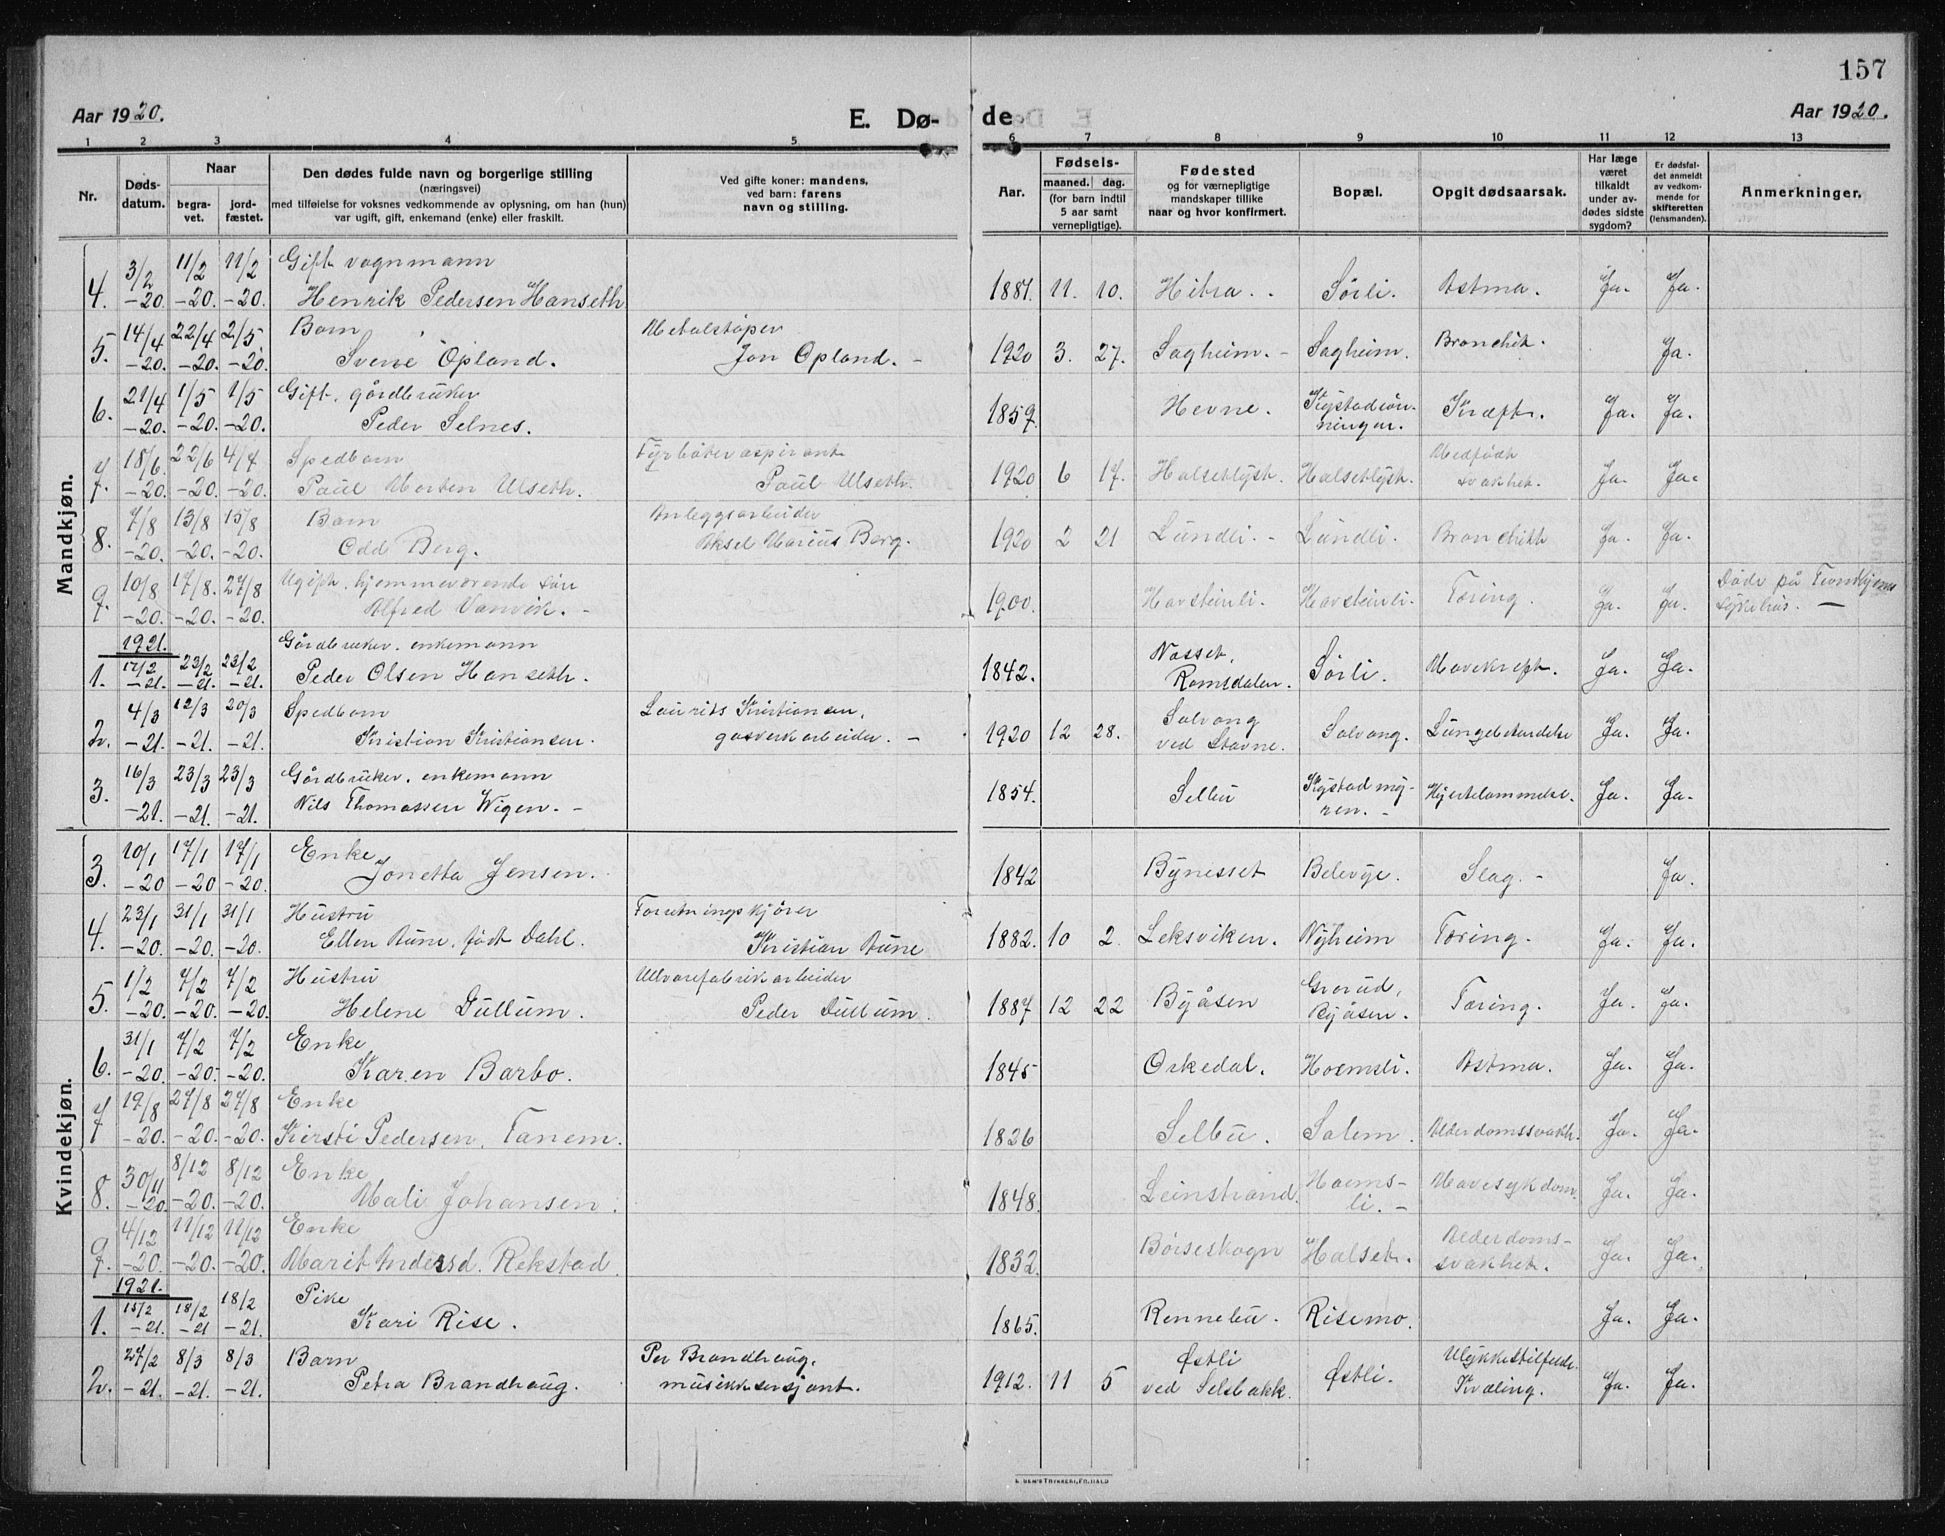 157
Aar 1920. E. Dø- de Aar 1920.
1 2 3 4 5 6 7 8 9 10 11 12 13
Nr. Døds-datum. Naar begra-vet. jord-fæstet. Den dødes fulde navn og borgerlige stilling (næringsvei) med tilføielse for voksnes vedkommende av oplysning, om han (hun) var ugift, gift, enkemand (enke) eller fraskilt. Ved gifte koner: mandens, ved barn: farens navn og stilling. Aar. Fødsels- maaned. dag. (for barn indtil 5 aar samt vernepligtige). Fødested og for værnepligtige mandskaper tillike naar og hvor konfirmert. Bopæl. Opgit dødsaarsak. Har læge været tilkaldt under av-dødes sidste sygdom? Er dødsfal-det anmeldt av vedkom-mende for skifteretten (lensmanden). Anmerkninger.
Mandkjøn.
4. 3/2 -20. 11/2 -20. 11/2 -20. Gift vognmann Henrik Pedersen Hanseth 1881. 11. 10. Hitra. Sörli. Astma. Ja. Ja.
5. 14/4 -20. 22/4 -20. 2/5 -20. Barn Sverre Opland. Metalstöper Jon Opland. - 1920 3. 27. Sagheim. - Sagheim. Bronchit. Ja.
6. 21/4 -20. 1/5 -20. 1/5 -20. Gift, gårdbruker Peder Selnes. 1859. Hevne. Kræft. Ja. Ja.
7. 18/6 -20. 22/6 -20. 4/7 -20. Spedbarn Paul Morten Ulseth. Fyrböteraspirant Paul Ulseth. 1920 6 17. Halsetlyst. Halsetlyst. Medfödt svakhet. Ja. Ja.
8. 7/8 -20. 13/8 -20. 15/8 -20. Barn Odd Berg. Anleggsarbeider Aksel Marius Berg. 1920 2 21 Lundli. - Lundli. Bronchitt Ja. Ja.
9. 10/8 -20. 17/8. -20. 27/8 -20. Ugift. hjemmeværende sön Alfred Vanvik. - 1900. Havsteinli. Havsteinli. Tæring. Ja. Ja. Döde på Trondhjems sykehus. -
1921.
1. 17/2 -21. 23/2 -21. 23/2 -21. Gårdbruker, enkemann Peder Olsen Hanseth. 1842. Nösset, Romsdalen. Sörli. Mavekræft. Ja. Ja.
2. 4/3 -21. 12/3 -21. 20/3 -21. Spedbarn Kristian Kristiansen. Laurits Kristiansen, gasverkarbeider. - 1920 12 28. Solvang ved Stavne. Solvang. Lungebetændelse Ja. Ja.
3. 16/3 -21. 23/3 -21. 23/3 -21. Gårdbruker, enkemann Nils Thomassen Wigen. - 1854. Selbu Kystadmy-ren. - Hjertelammelse. Ja. Ja.
Kvindekjøn.
3. 10/1 -20 17/1 -20 17/1 -20. Enke Jonetta Jensen. 1842 Bynesset Belevue. Slag. - Ja.
4. 23/1 -20. 31/1 -20. 31/1 -20. Hustru Ellen Aune, födt Dahl. Forretningskjörer Kristian Aune 1882. 10 2. Leksviken. Nyheim Tæring. Ja. Ja.
5. 1/2 -20. 7/2 -20. 7/2 -20. Hustru Helene Dullum. Ullvarefabrikarbeider Peder Dullum. 1887 12 22 Byåsen Grorud, Byåsen. Tæring. Ja. Ja.
6. 31/1 -20. 7/2 -20. 7/2 -20. Enke Karen Barbo. 1845 Orkedal. Hoemsli. Astma. Ja. Ja.
7 19/8 -20. 27/8 -20. 27/8 -20. Enke Kirsti Pedersen Tanem. 1826 Selbu. Salem. Alderdomssvakh. Ja. Ja.
8. 30/11 -20. 8/12 -20. 8/12 -20. Enke Mali Johansen. 1848. Leinstrand. Hoems-li. - Mavesykdom. Ja. Ja.
9. 4/12 -20. 11/12 -20. 11/12 -20. Enke Marit Andersd. Rekstad. 1832. Börseskogn Halset. Alderdoms-svakhet. Ja. Ja.
1921.
1. 15/2 -21. 18/2 -21 18/2 -21. Pike Kari Rise. 1865. Rennebu. Risemo. Ja. Ja.
2. 27/2 -21. 8/3 -21. 8/3 -21. Barn Petra Brandhaug. Per Brandhaug, musikksersjant. 1912. 11 5 Østli ved Selsbakk. Østli. Ulykkestilfelde. Kvæling. Ja. Ja.